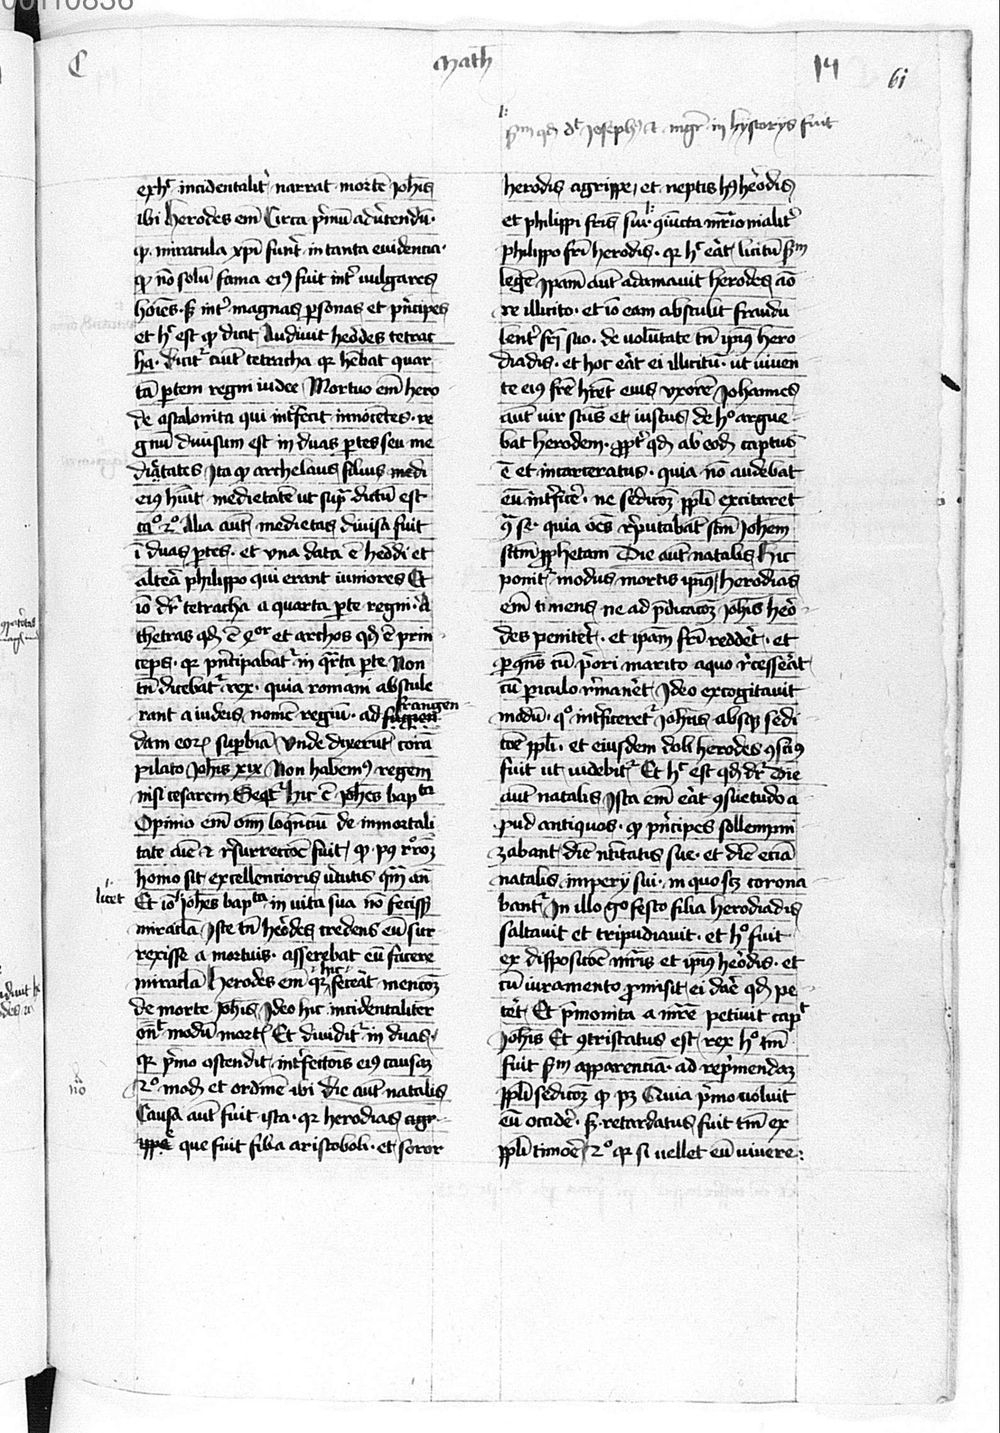 C
Math
14
61
exhꝰ incidentalitʼ narrat mortē Joħis
ibi Herodes em̄ Circa pʼmū aduʼtendū·
qꝫ miracula xp̄i fūnt in tanta euidentia·
qꝫ nō solū fama eiꝰ fuit intʼ vulgares
hoīes· sꝫ intʼ magnas ꝑsonas et pʼncipes
et hͨ est qꝫ dicit Audiuit heʼdes tetrac
ha· Dicitʼ autē tetracha qꝛ hēbat quar
tā ꝑtem regni iudee Mortuo em̄ hero
de ascalonita qui intʼfecit innocētes· re
gnū diuisum est in duas ꝑtes seu me
dietates Ita qꝫ archelaus filius medi
eiꝰ hūit medietatē ut supʼ dictū est
cͣ· 2º· Alia autē medietas diuisa fuit
ī duas ꝑtes· et vna data ē heʼdi et
alteʼa philippo qui erant iuniores Et
iō dʼr tetracha a quarta ꝑte regni· A
thetras qđ ē 4or et archos qđ ē prin
ceps· qꝛ pʼncipabatʼ in qʼrta ꝑte Non
tn̄ dicebatʼ rex· quia romani abstule
rant a iudeis nomē regiū· ad frangen
dam eoꝝ supʼbiā Vnde dixerūt corā
pilato Joħis xix Non habemꝰ regem
nisi cesarem Seqʼtʼ hic ē Joħes bapta
Opinio em̄ oīm loqūciū de inmortali
tate aīe et rʼsurrectōe fuit· qꝫ pꝰ rʼrōꝫ
homo sit excellencioris vʼtutis qm̄ an̄
licet
Et iō Joħes bapta in vita sua nō fecissꝫ
miracla Iste tn̄ heʼodes credens eū sur
rexisse a mortuis· asserebat eū facere
miracla Herodes em̄ qꝛ hic feceʼat mencōꝫ
de morte Joħis Ideo hic incidentaliter
on̄tʼ modū mortʼ Et diuiditʼ in duas·
qꝛ pʼmo ostendit intʼfectōis eiꝰ causaꝫ
2º modū et ordinē ibi die autē natalis
Causa autē fuit ista· qꝛ herodias agr
ippe que fuit filia aristoboli· et soror
scʼm qđ dʼt Josephꝰ et mgʼr in hystorijs fuit
herodis agrippe et neptis hꝰ heʼodis
et philippi frʼis suiʼ giūcta mʼrimonialitʼ
philippo frʼi herodis· qꝛ hͨ eʼat licitū scʼm
legē Ipam autē adamauit herodes aō
re illicito· et iō eam abstulit fraudu
lentʼ frʼi suo· de volūtate tn̄ ipiꝰ hero
diadis· et hoc eʼat ei illicitū· ut viuen
te eiꝰ frʼe hrʼet eius vxorē Johannes
autē vir scūs et iustus de hº argue
bat herodem· ꝓptʼ qđ ab eođ captus
ē et incarceratus· quia nō audebat
eū intʼficeʼ ne sedicōꝫ pp̄li excitaret
9ͣ se· quia oēs rʼputabāt scʼm Joħem
scʼm ꝓphetam Die autē natalis Hic
ponitʼ modus mortis ipiꝰ herodias
em̄ timens ne ad pʼdicacōꝫ Joħis heʼo
des peniteʼt· et ipam frʼi reddeʼt· et
ꝑ qn̄s cū pʼori marito a quo rʼcesseʼat
cū piculo rʼmaneʼt Ideo excogitauit
modū· qº intʼficeretʼ Joħis absqꝫ sedi
cōe pp̄li· et eiusdem doli herodes 9sciꝰ
fuit ut videbitʼ Et hͨ est qđ dʼr Die
autē natalis Ista em̄ eʼat 9suetudo a
pud antiquos· qꝫ pʼncipes sollempni
zabant diē nʼtiuitatis sue· et diē eciā
natalis imperij sui· in quo scꝫ corona
bantʼ In illo gº festo filia herodiadis
saltauit et tripudiauit· et hº fuit
ex dispositōe mʼris et ipiꝰ heʼodis· et
cū iuramento ꝓmisit ei daʼe qđ pe
teʼt· Et pʼmonita a mʼre petiuit capʼt
Joħis Et 9tristatus est rex hº tm̄
fuit scʼm apparenciā· ad repʼmendaꝫ
pp̄li sedicōꝫ qꝫ pꝫ Quia pʼmo voluit
eū occideʼ· sꝫ retardatus fuit tm̄ ex
pp̄li timoʼe 2º qꝛ si vellet eū viuere·